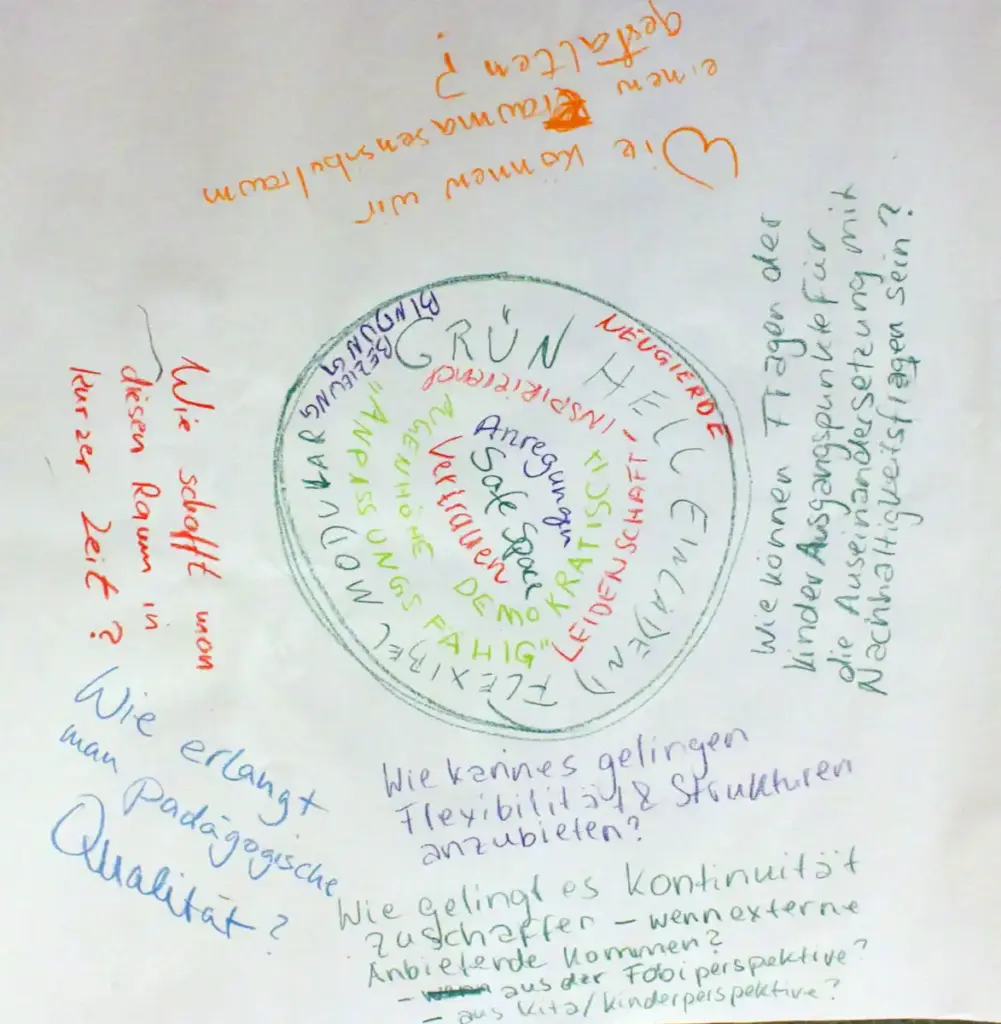 Wie können wir
einen traumasensibelraum
gestalten?
BINDUNG
BEZIEUNG
GRÜN HELL EINLA(DEN) FLEXIBEL MODULAR
NEUGIERDE
INSPIRIEREND
LEIDENSCHAFT
"ANPASSUNGSFÄHIG"
AUGENHÖHE DEMOKRATISCH
Anregungen
Safe Space
Vertrauen
Wie können Fragen der
kinder Ausgangspunkte für
die Auseinandersetzung mit
Nachhaltigkeitsfragen sein?
Wie schafft man
diesen Raum in
kurzer Zeit?
Wie erlangt
man pädagogische
Qualität?
Wie kann es gelingen
Flexibilität & Strukturen
anzubieten?
Wie gelingt es Kontinuität
zu schaffen – wenn externe
Anbietende kommen?
- aus der Fobiperspektive?
- aus Kita/kinderperspektive?